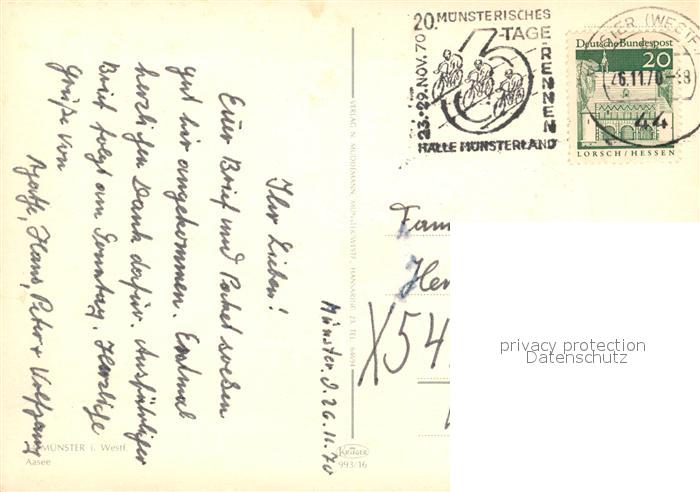 20. MÜNSTERISCHES
6-TAGE
RENNEN
23.-29. NOV. 70
HALLE MÜNSTERLAND
(WESTF
26.11.70-18
44
Deutsche Bundespost
20
LORSCH/HESSEN
Münster, d. 26.11.70
Ihr Lieben!
Euer Brief und Paket soeben
gut hier angekommen. Erstmal
herzlichen Dank dafür. Ausführlicher
Brief folgt am Sonntag. Herzliche
Grüße von
Agathe, Hans, Peter + Wolfgang
Fam
Her
X54
privacy protection
Datenschutz
VERLAG MÜNSTER/WESTF., HANSARING 23, TEL.
MÜNSTER i. Westf.
Aasee
Krüger
993/16